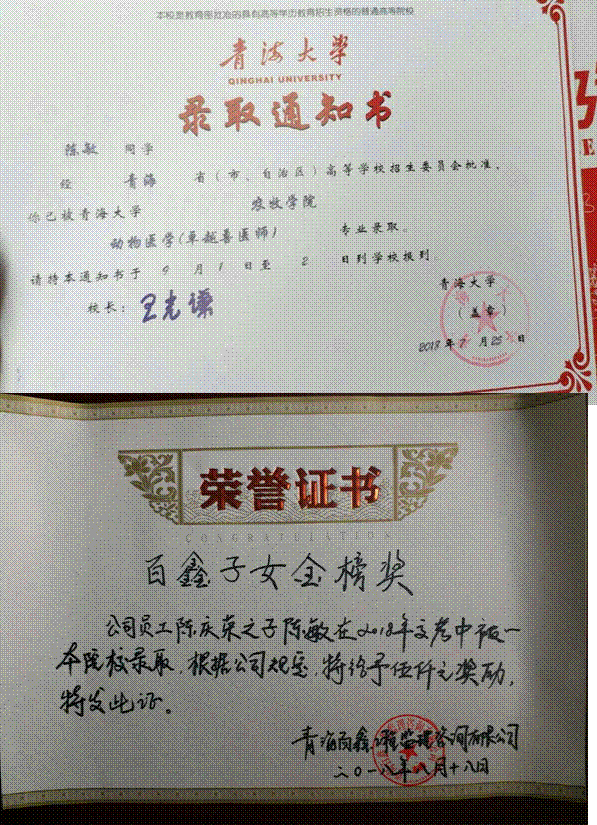 本校是教育部批准的具有高等学历教育招生资格的普通高等院校
青海大学
QINGHAI UNIVERSITY
录取通知书
陈敏 同学
经 青海 省(市、自治区)高等学校招生委员会批准,
你已被青海大学 农牧学院
动物医学(卓越兽医师) 专业录取。
请持本通知书于 9 月 1 日至 2 日到学校报到。
校长: 王光谦
青海大学
(盖章)
2018 年 7 月 25 日
荣誉证书
CONGRATULATION
百鑫子女金榜奖
公司员工陈庆荣之子陈敏在2018年高考中被一
本院校录取,根据公司规定,特给予伍仟元奖励,
特发此证。
青海百鑫工程监理咨询有限公司
二〇一八年八月十八日